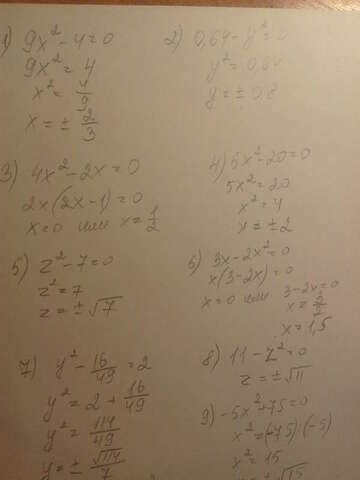 1) 9x² - 4 = 0
9x² = 4
x² = 4/9
x = ± 2/3
2) 0,64 - y² = 0
y² = 0,64
y = ± 0,8
3) 4x² - 2x = 0
2x(2x - 1) = 0
x = 0 или x = 1/2
4) 5x² - 20 = 0
5x² = 20
x² = 4
x = ± 2
5) z² - 7 = 0
z² = 7
z = ± √7
6) 3x - 2x² = 0
x(3 - 2x) = 0
x = 0 или 3 - 2x = 0
x = 3/2
x = 1,5
7) y² - 16/49 = 2
y² = 2 + 16/49
y² = 114/49
y = ± √114/7
8) 11 - z² = 0
z = ± √11
9) -5x² + 75 = 0
x² = (-75):(-5)
x² = 15
x = ± √15